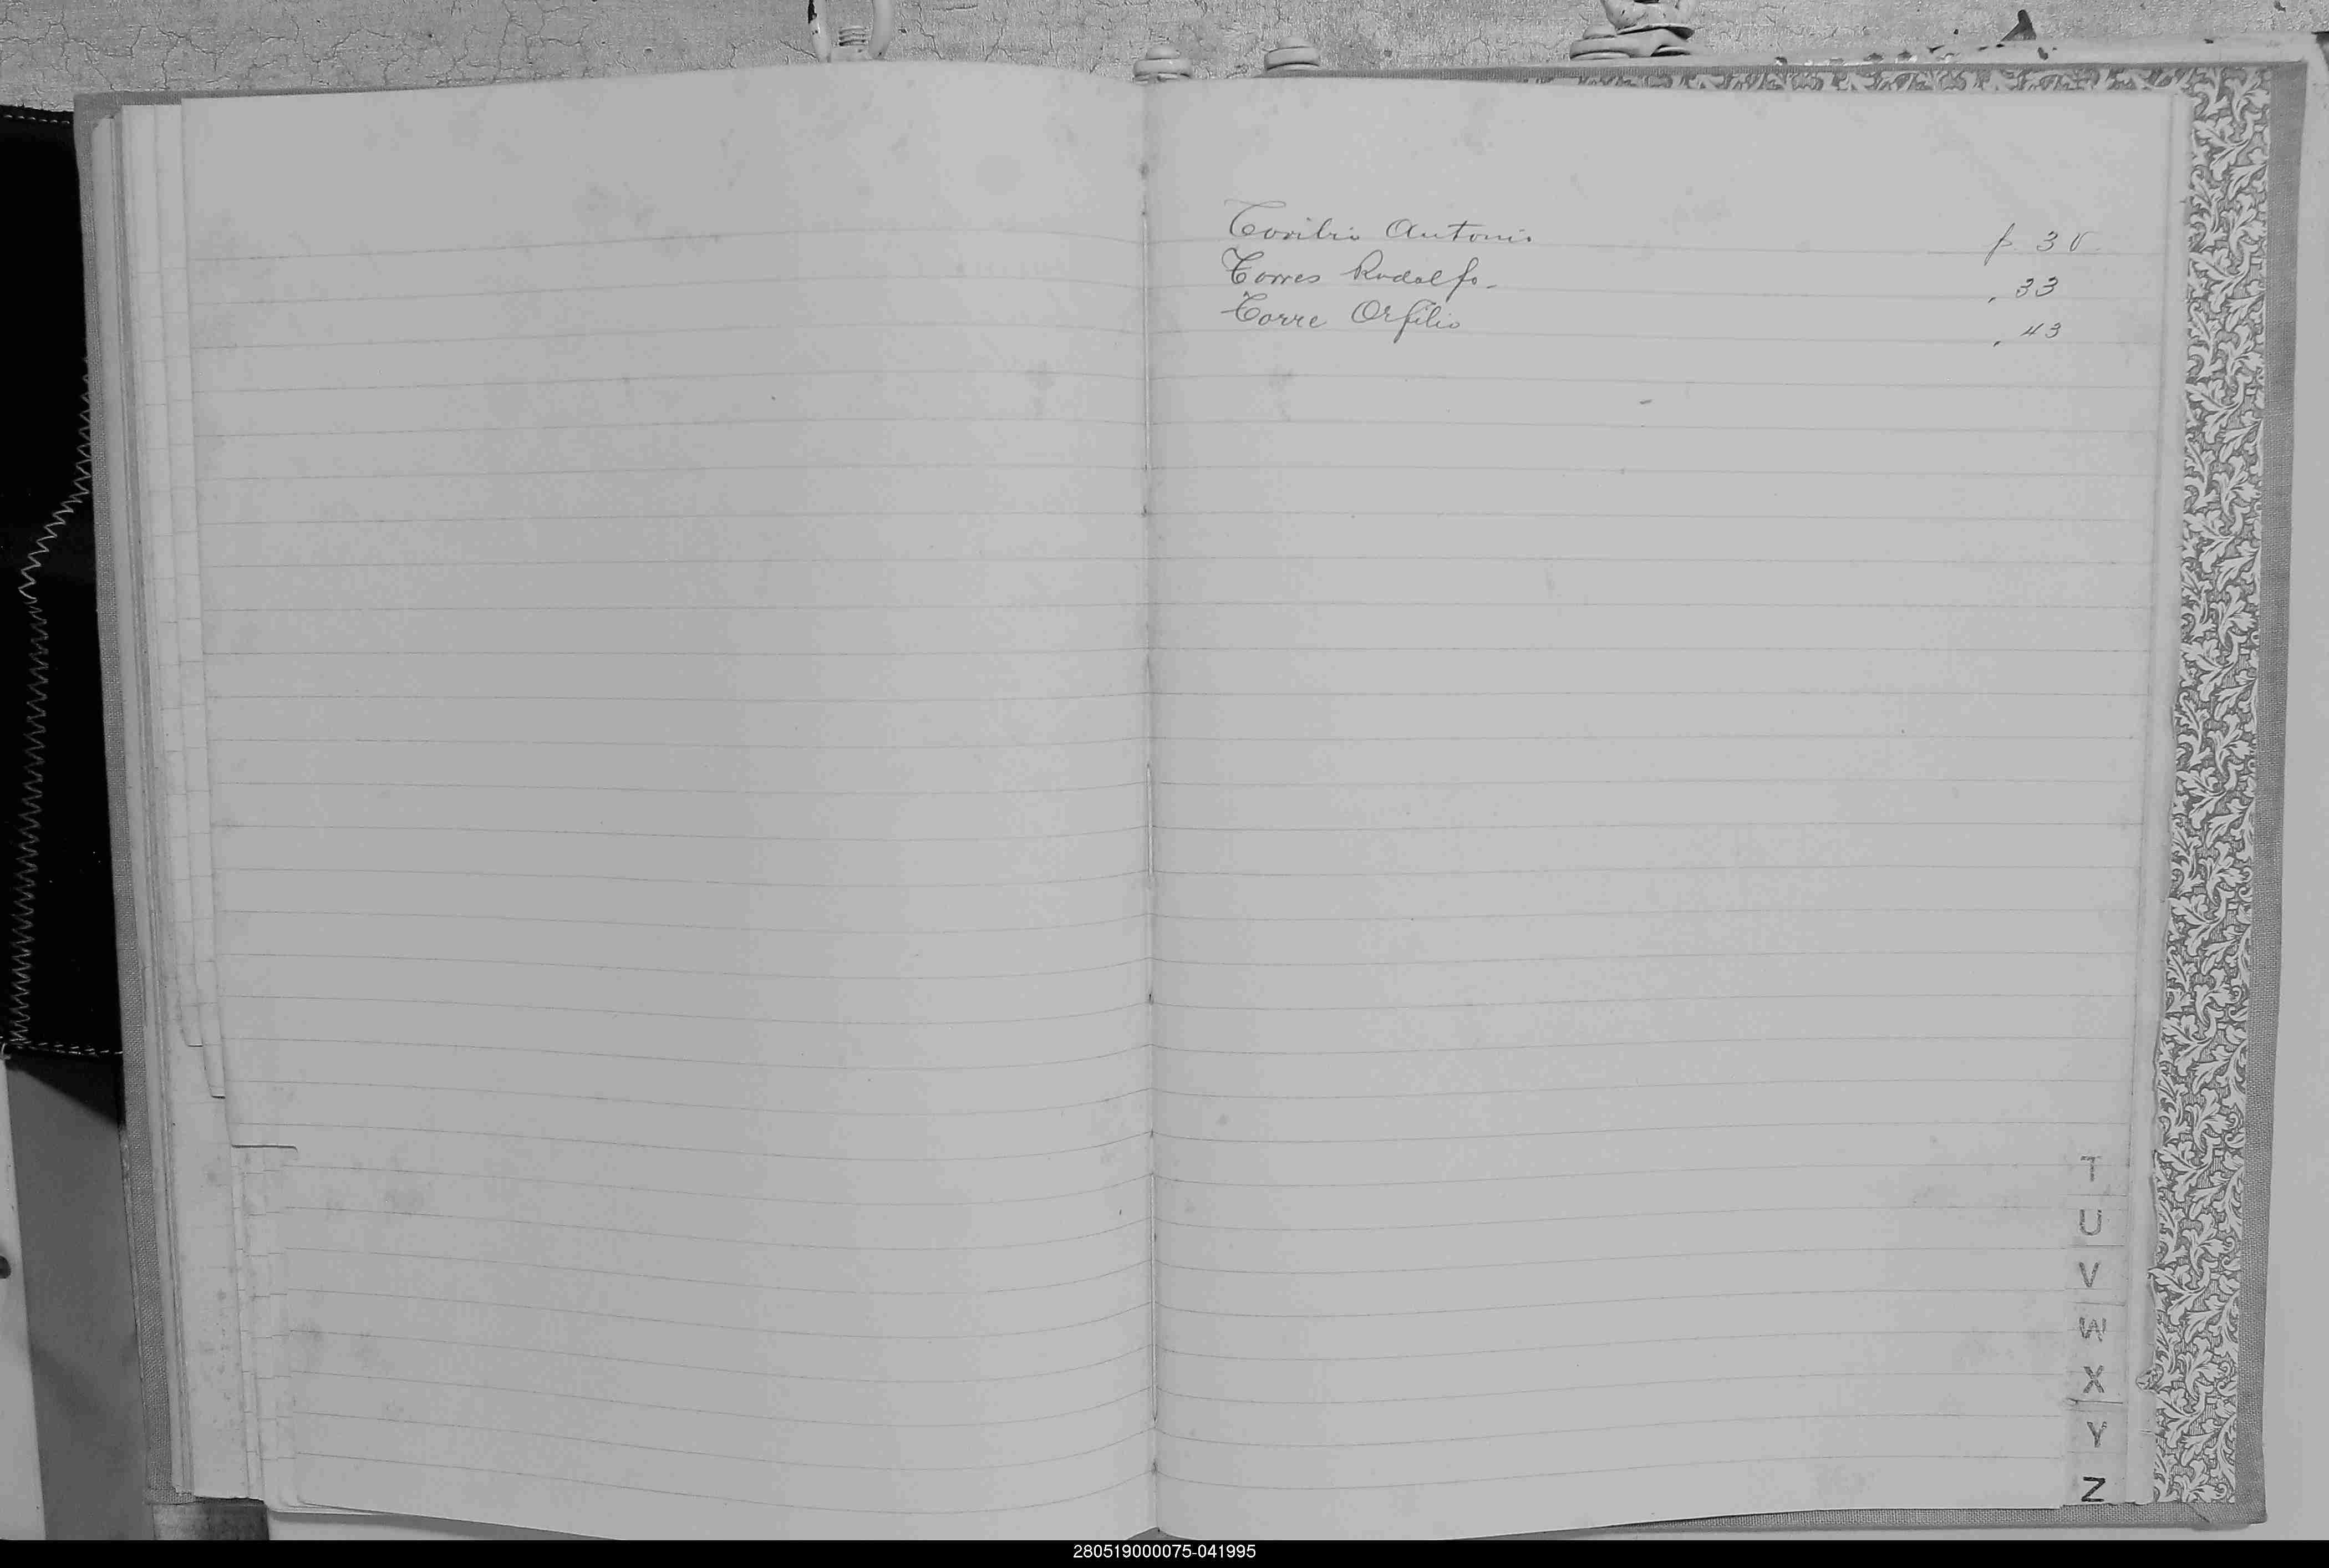 Toribio Antonio p 3 v
Torres Rodolfo - " 33
Torre Orfilio " 43
T
U
V
W
X
Y
Z
280519000075-041995